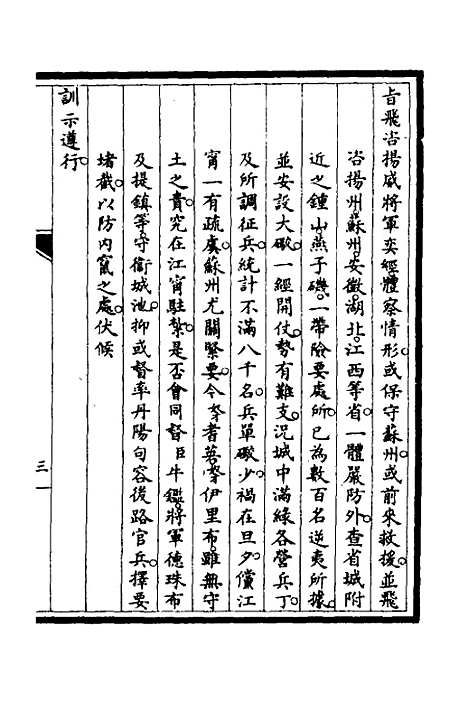 旨飛咨揚威將軍奕經體察情形或保守蘇州或前來救援並飛
咨揚州蘇州安徽湖北江西等省一體嚴防外查省城附
近之鍾山燕子磯一帶險要處所已為數百名逆夷所據
並安設大礮一經開仗勢有難支況城中滿綠各營兵丁
及所調征兵統計不滿八千名兵單礮少禍在旦夕儻江
甯一有疏虞蘇州尤關緊要令
土之責究在江甯駐紮是否會同督臣牛鑑將軍德珠布
及提鎮等守衞城池抑或督率丹陽句容後路官兵擇要
堵截以防內竄之處伏候
訓示遵行
三